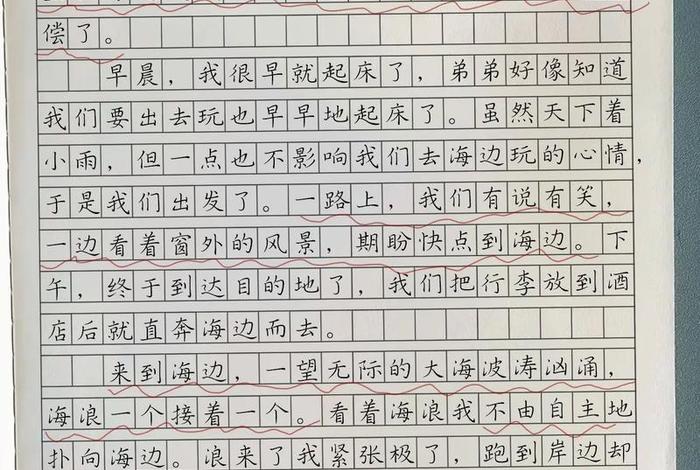 偿了。
早晨，我很早就起床了，弟弟好像知道
我们要出去玩也早早地起床了。虽然天下着
小雨，但一点也不影响我们去海边玩的心情，
于是我们出发了。一路上，我们有说有笑，
一边看着窗外的风景，期盼快点到海边。下
午，终于到达目的地了，我们把行李放到酒
店后就直奔海边而去。
来到海边，一望无际的大海波涛汹涌，
海浪一个接着一个。看着海浪我不由自主地
扑向海边。浪来了我紧张极了，跑到岸边却